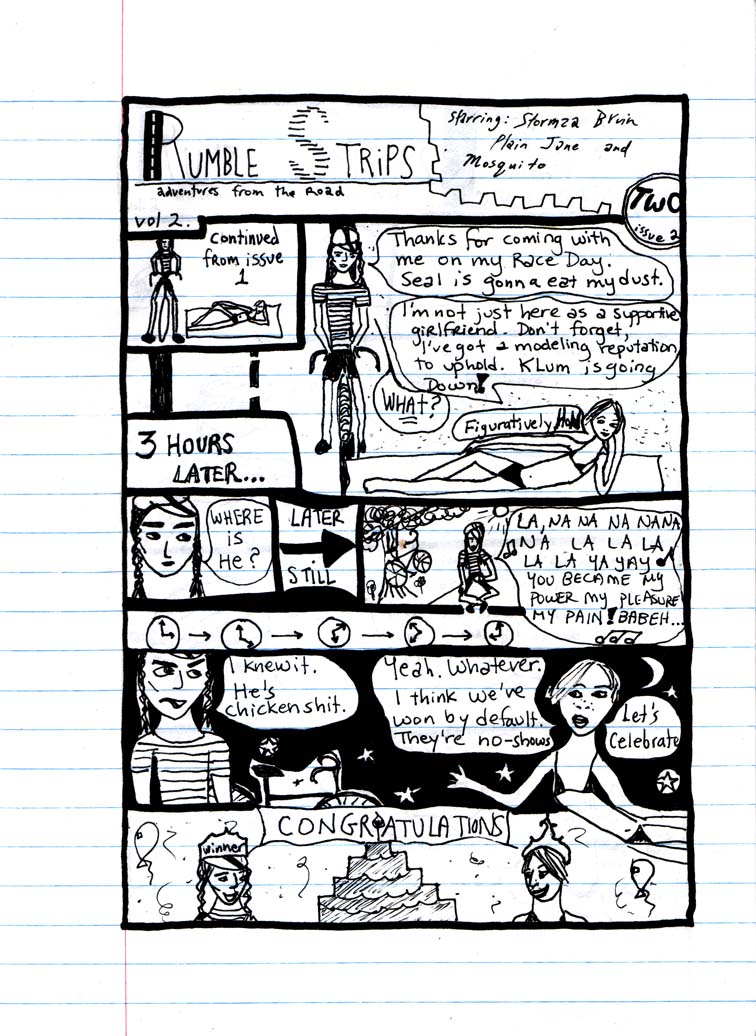 RUMBLE STRIPS
adventures from the Road
starring: Stormza Bruin
Plain Jane and
Mosquito
vol 2.
TWO
issue 2
Continued
from issue
1
Thanks for coming with
me on my Race Day.
Seal is gonna eat my dust.
I'm not just here as a supportive
girlfriend. Don't forget,
I've got a modeling reputation
to uphold. KLum is going
Down!
WHAT?
Figuratively, HoN
3 HOURS
LATER...
WHERE
is
He?
LATER
STILL
LA, NA NA NA NANANA
NA LA LA LA
LA LA YA YAY
YOU BECAME MY
POWER MY PLEASURE
MY PAIN! BABEH...
I knew it.
He's
chickenshit.
Yeah. Whatever.
I think we've
won by default.
They're no-shows
Let's
Celebrate
CONGRATULATIONS
winner